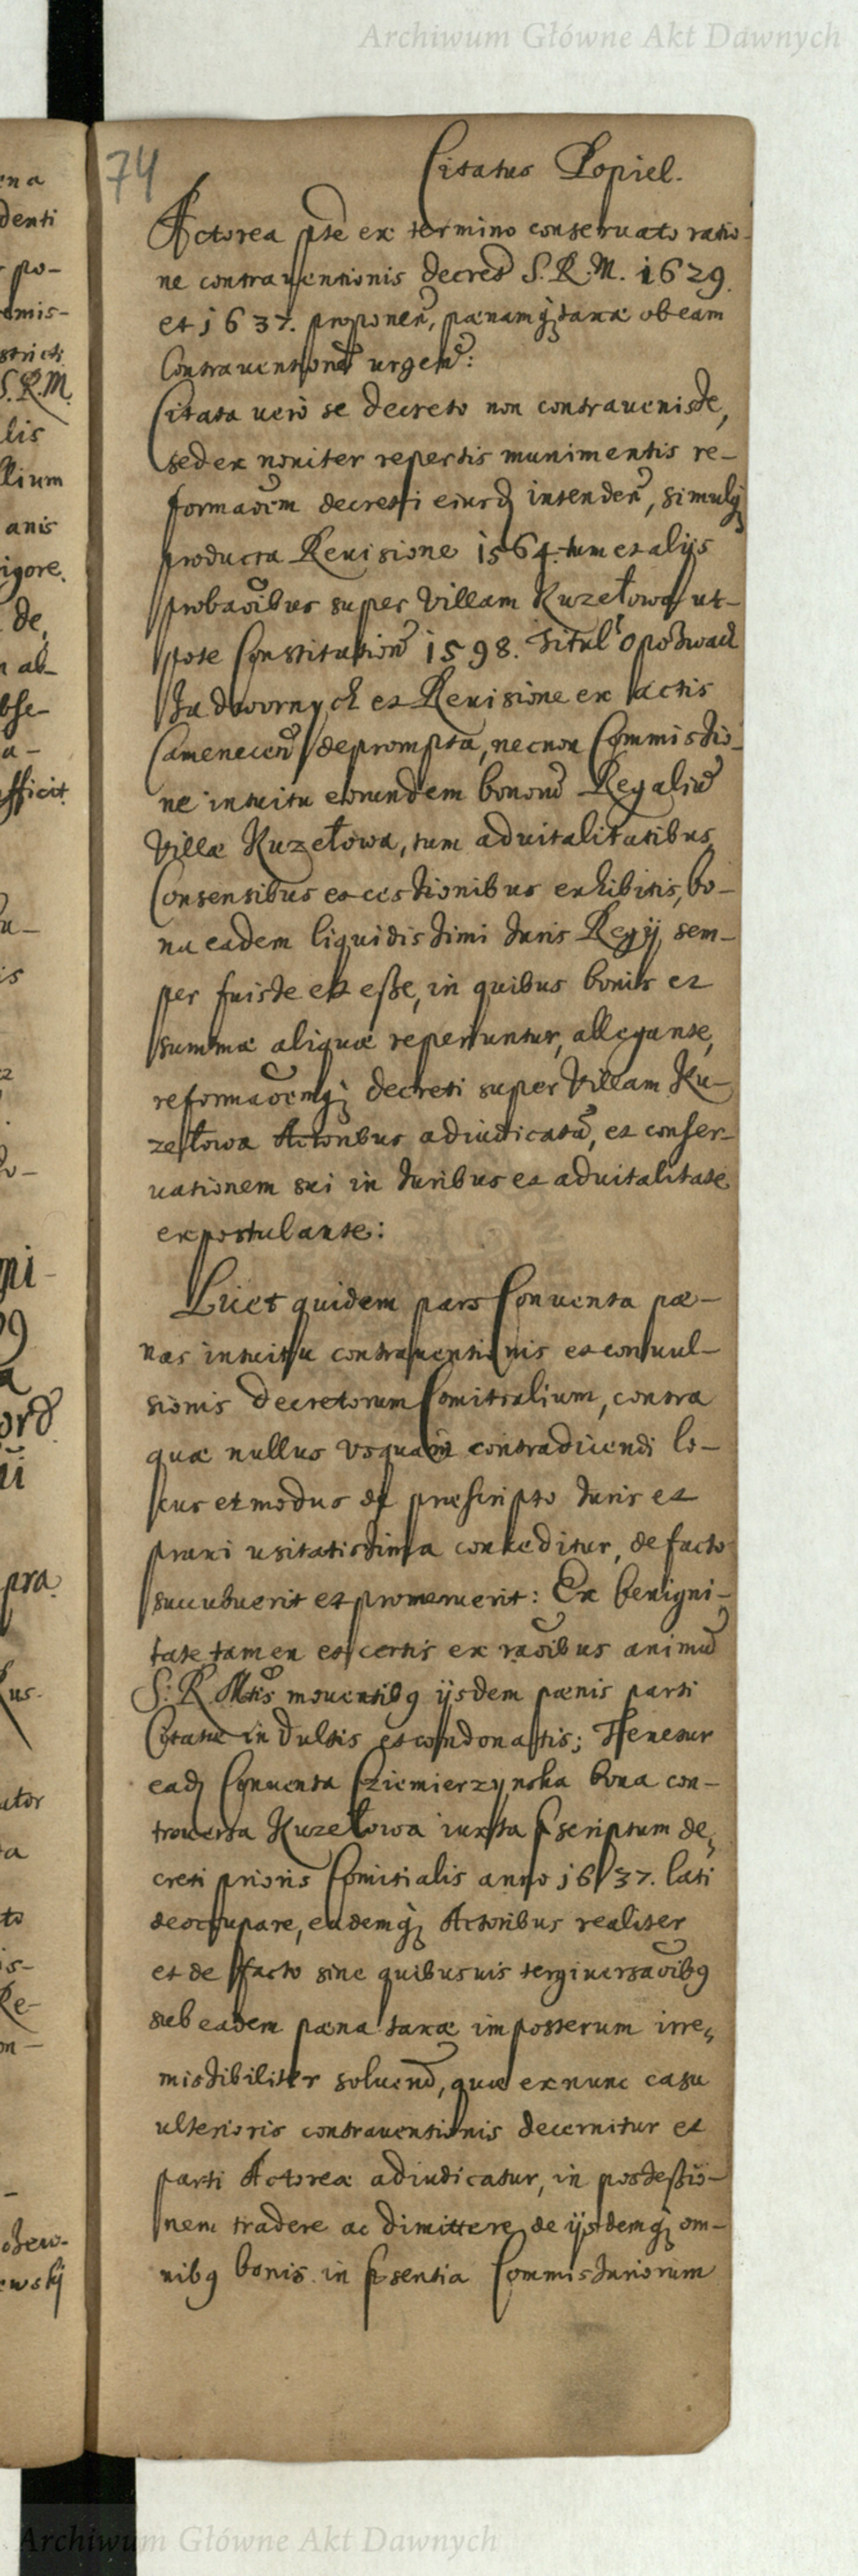 Archiwum Główne Akt Dawnych
74
Citatus Popiel.
Actorea pte ex termino conseruato ratio-
ne contrauentionis decret S. R. M. 1629.
et 1637. proponen, pænamq taxæ ob eam
Contrauentione urgen:
Citata uero se decreto non contrauenisse,
sed ex nouiter repertis munimentis re-
formaoem decreti eiusd intenden, simulq
producta Reuisione 1564. tum et alijs
probaoibus super Villam Kuzełowa ut-
pote Constitution 1598. Titul o pozwach
Zadwornych et Reuisione ex actis
Camenecen deprompta, necnon Commissio-
ne intuitu eorundem bonoru Regaliu
Villæ Kuzełowa, tum aduitalitatibus
Consensibus et cessionibus exhibitis, bo-
na eadem liquidissimi Iuris Regij sem-
per fuisse et esse, in quibus bonis et
summæ aliquæ reperiuntur, allegante,
reformaoemq decreti super Villam Ku-
zełowa Actoribus adiudicata, et conser-
uationem sui in Iuribus et aduitalitate
expostulante:
Licet quidem pars Conuenta pæ-
nas intuitu contrauentionis et conuul-
sionis decretorum Comitialium, contra
quæ nullus vsquam contradicendi lo-
cus et modus de præscripto Iuris et
praxi usitatissima conceditur, de facto
succubuerit et promeruerit: Ex benigni-
tate tamen et certis ex raoibus animu
S. R. Mtis mouentibq ijsdem pænis parti
Citatæ indultis et condonatis; Tenetur
ead Conuenta Cziemierzynska bona con-
trouersa Kuzełowa iuxta Pscriptum de-
creti prioris Comitialis anno 1637. lati
deoccupare, eademq Actoribus realiter
et de facto sine quibusuis tergiuersaoibq
sub eadem pæna taxæ imposterum irre-
missibiliter soluend, quæ ex nunc casu
ulterioris contrauentionis decernitur et
parti Actoreæ adiudicatur, in possessio-
nem tradere ac dimittere, de ijsdemq om-
nibq bonis in Psentia Commissariorum
Archiwum Główne Akt Dawnych